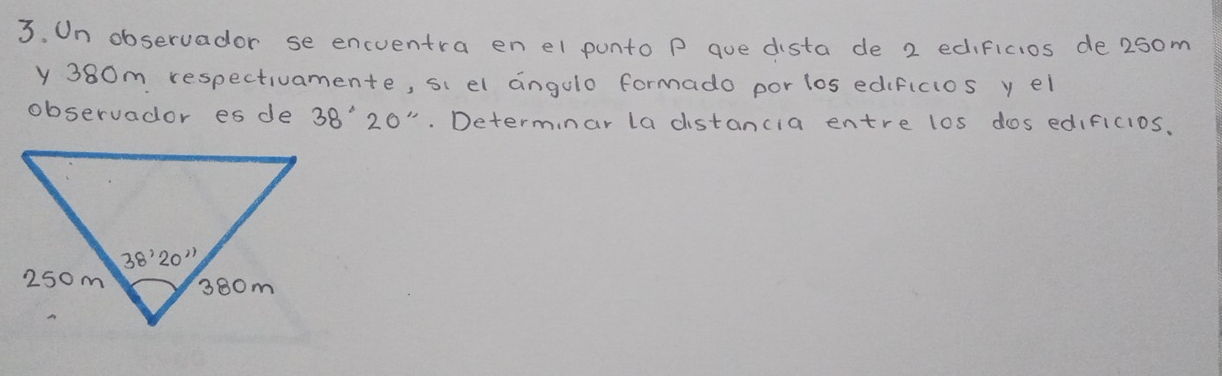 3. Un observador se encuentra en el punto P que dista de 2 edificios de 250m
y 380m respectivamente, si el ángulo formado por los edificios y el
observador es de 38' 20". Determinar la distancia entre los dos edificios.
38' 20"
250m
380m